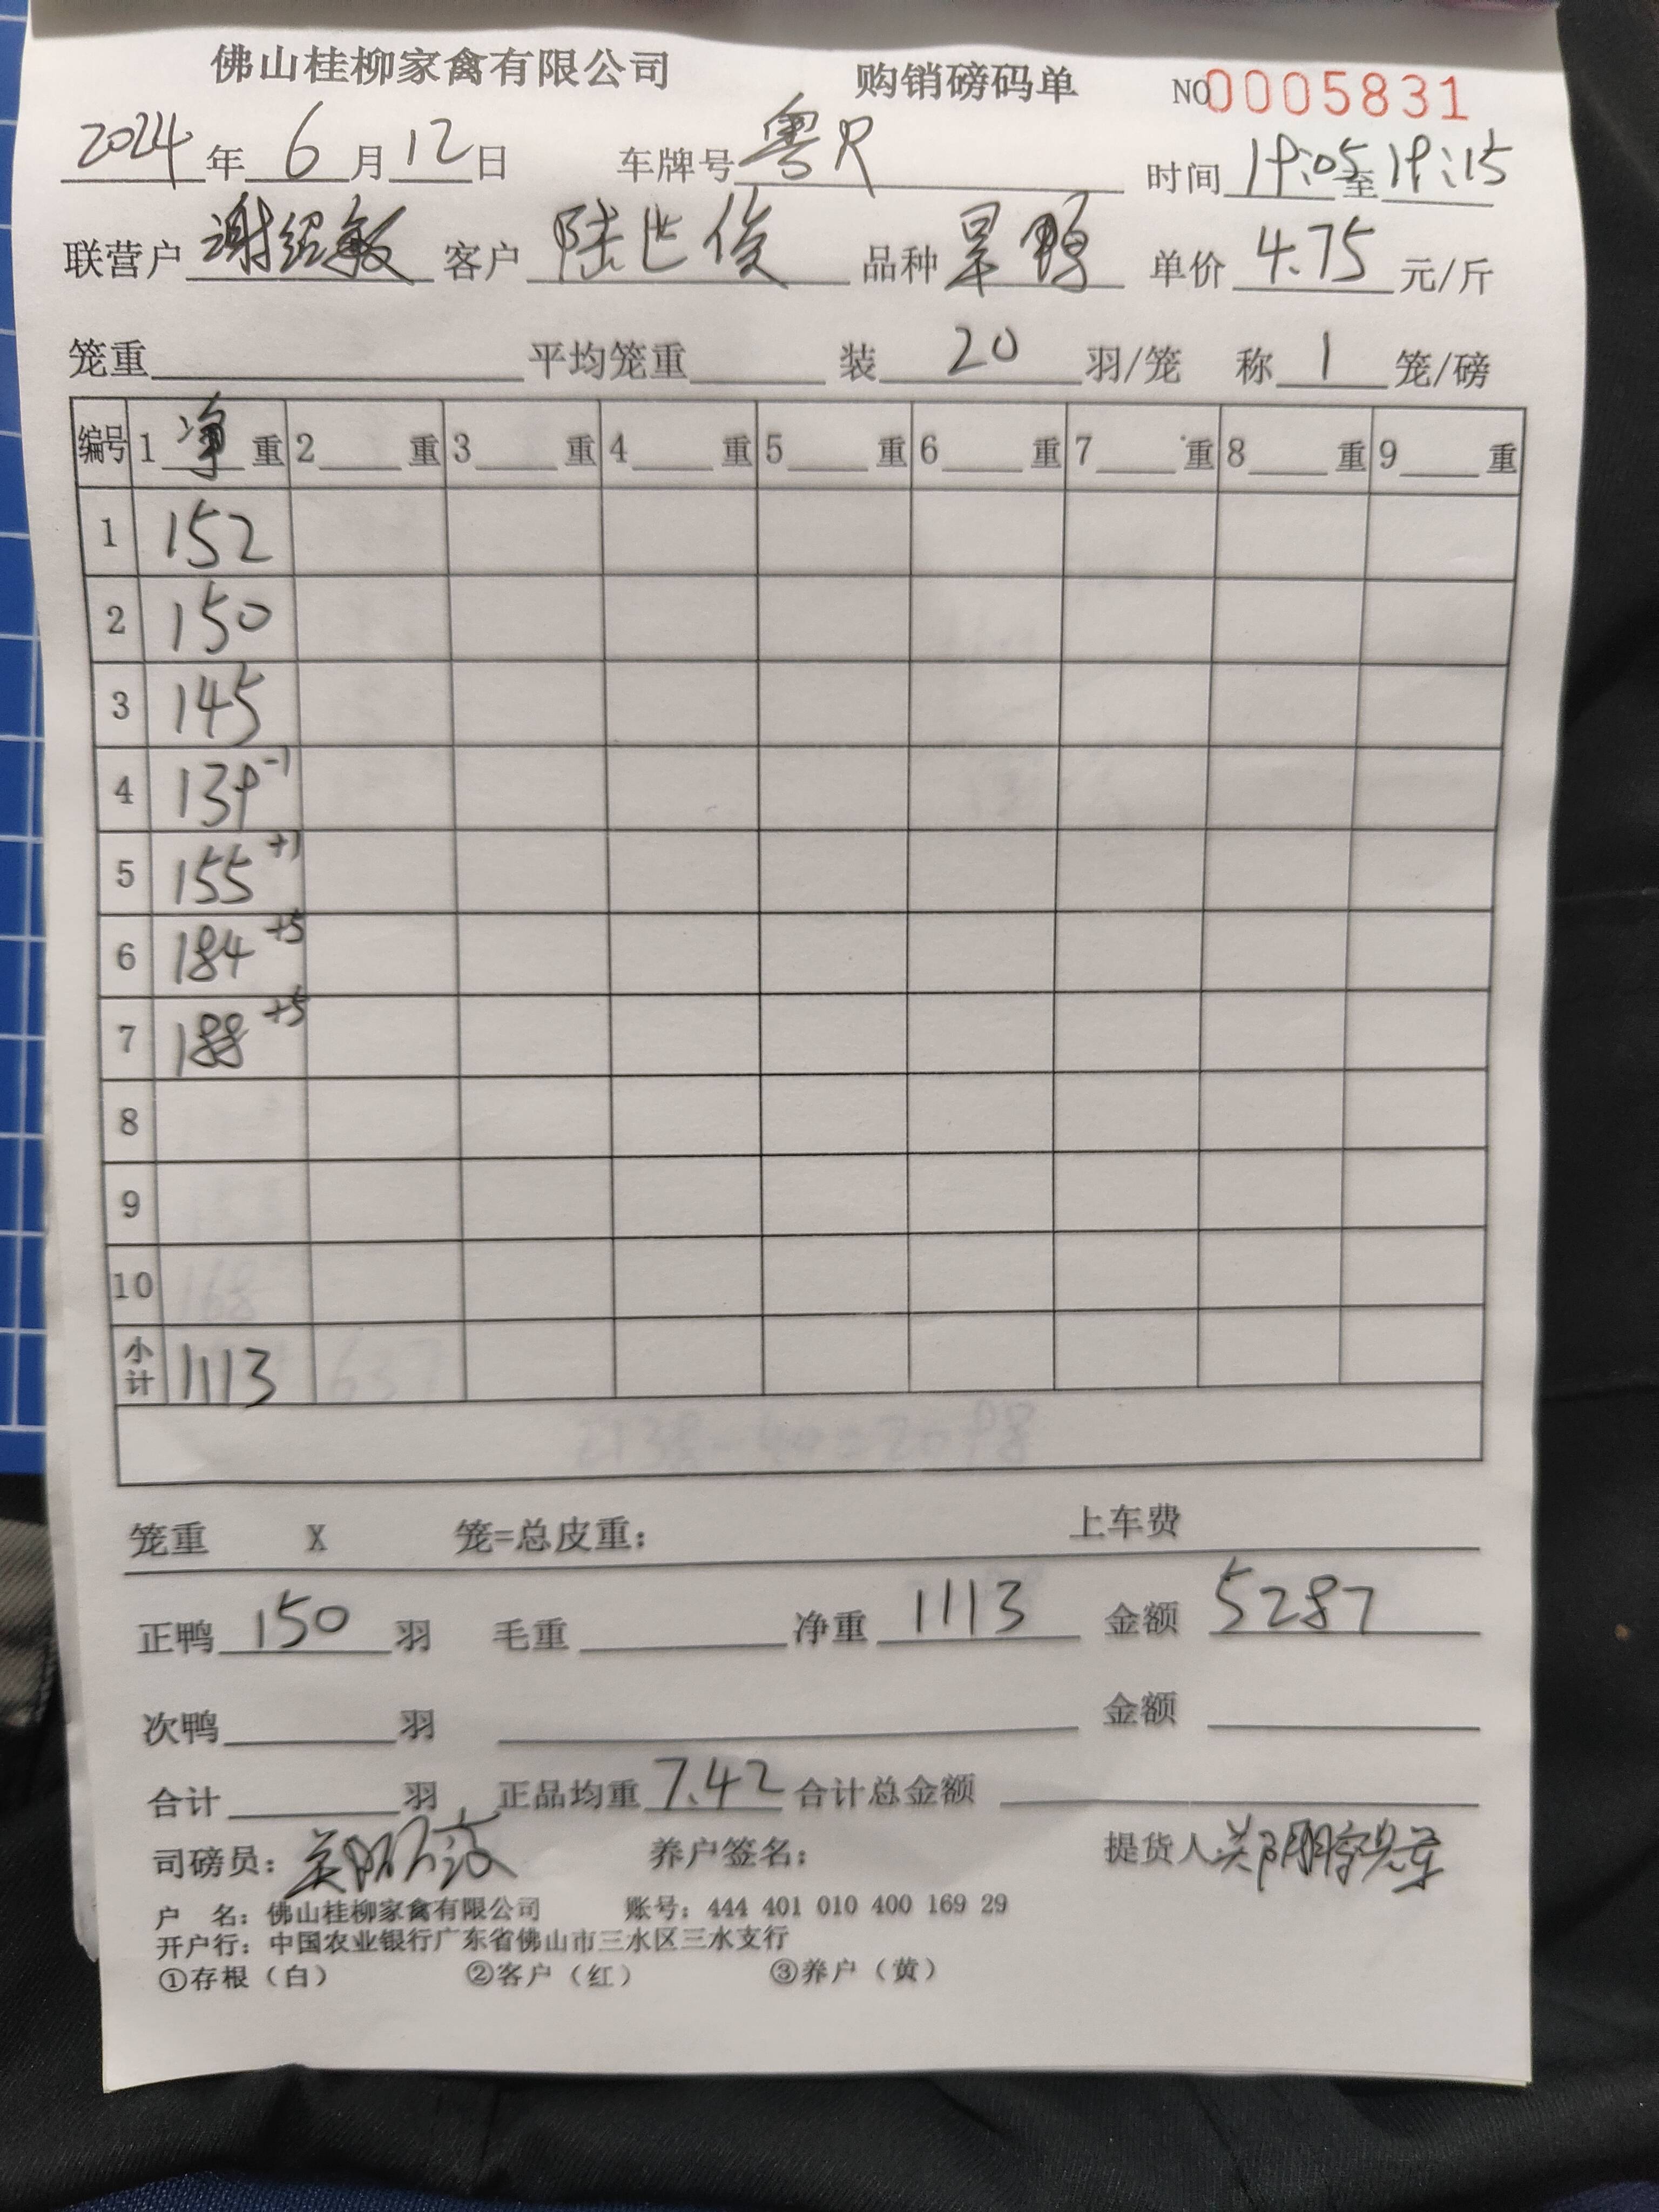 佛山桂柳家禽有限公司 购销磅码单 NO0005831
2024年6月12日 车牌号粤R 时间19:05至19:15
联营户谢绍敏 客户陆世俊 品种旱鸭 单价4.75元/斤
笼重 平均笼重 装20羽/笼 称1笼/磅
编号 1净重 2重 3重 4重 5重 6重 7重 8重 9重
1 152
2 150
3 145
4 139-1
5 155+1
6 184+5
7 188+5
8
9
10 168
小计 1113 637
2138-40=2098
笼重 X 笼=总皮重: 上车费
正鸭150羽 毛重 净重1113 金额5287
次鸭 羽 金额
合计 羽 正品均重7.42 合计总金额
司磅员: 养户签名: 提货人
户 名: 佛山桂柳家禽有限公司 账号: 444 401 010 400 169 29
开户行: 中国农业银行广东省佛山市三水区三水支行
①存根(白) ②客户(红) ③养户(黄)